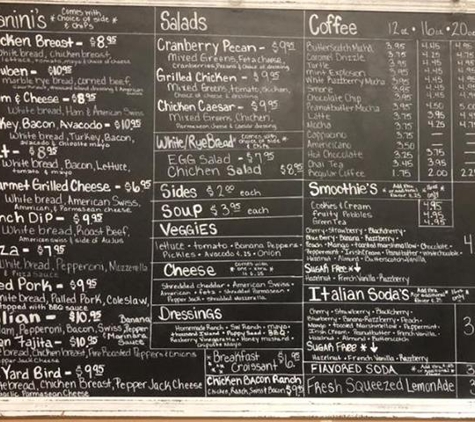 anini's
Comes with
* Choice of side *
& Chips
cken Breast - $8.95
White bread, chicken breast,
lettuce, tomato, mayo & choice of cheese
uben - $10.95
marble rye bread, corned beef,
m & Cheese - $8.95
White bread, Ham & American Swiss
key, Bacon, Avacado - $10.95
White bread, Turkey, Bacon,
avocado & chipotle mayo
t - $8.95
White bread, Bacon, Lettuce,
tomato & mayo
urmet Grilled Cheese - $6.95
White bread, American, Swiss,
American, & Parmesean cheese
nch Dip - $9.95
white bread, Roast Beef,
American swiss & side of Au Jus
za - $7.95
White bread, Pepperoni, Mozzarella
& Pizza Sauce
ed Pork - $9.95
White bread, Pulled Pork, Coleslaw,
topped with BBQ sauce
alian - $10.95
Ham, Pepperoni, Bacon, Swiss, Pepper
Banana
Marinara
Sauce
en Fajita - $10.95
bread, Chicken breast, Fire Roasted Peppers & Onions
Pepper Jack Cheese
Yard Bird - $9.95
White bread, Chicken Breast, Pepper Jack Cheese
garlic Parmesean Cheese
Salads
Cranberry Pecan - $9.95
Mixed Greens, Feta Cheese,
Cranberries, Pecans & Choice of dressing
Grilled Chicken - $9.95
Mixed Greens, tomato, chicken,
Choice of cheese & dressing
Chicken Caesar - $9.95
Mixed Greens, Chicken,
Parmesean cheese & Caesar dressing
White/Rye Bread
Comes with
* choice of side *
& Chips
EGG Salad - $7.95
Chicken Salad $8.95
Sides $2.00 each
Soup $3.95 each
Veggies
lettuce • tomato • Banana Peppers
Pickles • Avocado $.75 • Onion
Cheese
Shredded cheddar • American Swiss
American • Feta • Shredded Parmesean •
Pepper Jack • Shredded mozzarella
Dressings
Homemade Ranch • Soy Ranch • mayo
thousand Island • Poppy Seed • BBQ
Rasberry Vinegarette • Honey mustard
Chipotle Mayo
* Breakfast
Croissant *
Chicken Bacon Ranch
Chicken, Ranch, Swiss & Bacon $9.95
Coffee 12oz • 16oz • 20oz
ButterScotch Mocha 3.95 4.45
Caramel Drizzle 3.95 4.45
Mint Explosion 3.95 4.45
White Raspberry Mocha 3.95 4.45
Smore 3.95 4.45
Chocolate Chip 3.95 4.45
Peanutbutter Mocha 3.95 4.50
Latte 3.75
Mocha 3.75 4.25
Cappucino 3.75
Americano 3.50
Hot Chocolate 3.25 3.75
Chai Tea 3.45 3.95
Regular Coffee 1.75 2.00 2.25
Smoothie's
Cookies & Cream 4.95
Fruity Pebbles 4.95
Green Tea 4.95
Cherry • Strawberry • Blackberry
Blue berry • Banana • Raspberry
Peach • Mango • toasted Marshmallow • Chocolate •
Peppermint • Irish Cream • Peanut butter • White chocolate
Hazelnut • Almond • French Vanilla
Sugar Free * ↓
Hazelnut • French Vanilla • Raspberry
Italian Soda's
Cherry • Strawberry • Blackberry
Blueberry • Banana • Raspberry • Peach •
Mango • toasted Marshmallow • Peppermint
Irish Cream • Peanutbutter • French vanilla •
Hazelnut • Almond • Butterscotch
Sugar Free * ↓
Hazelnut • French Vanilla • Raspberry
Flavored Soda
Fresh Squeezed LemonAde